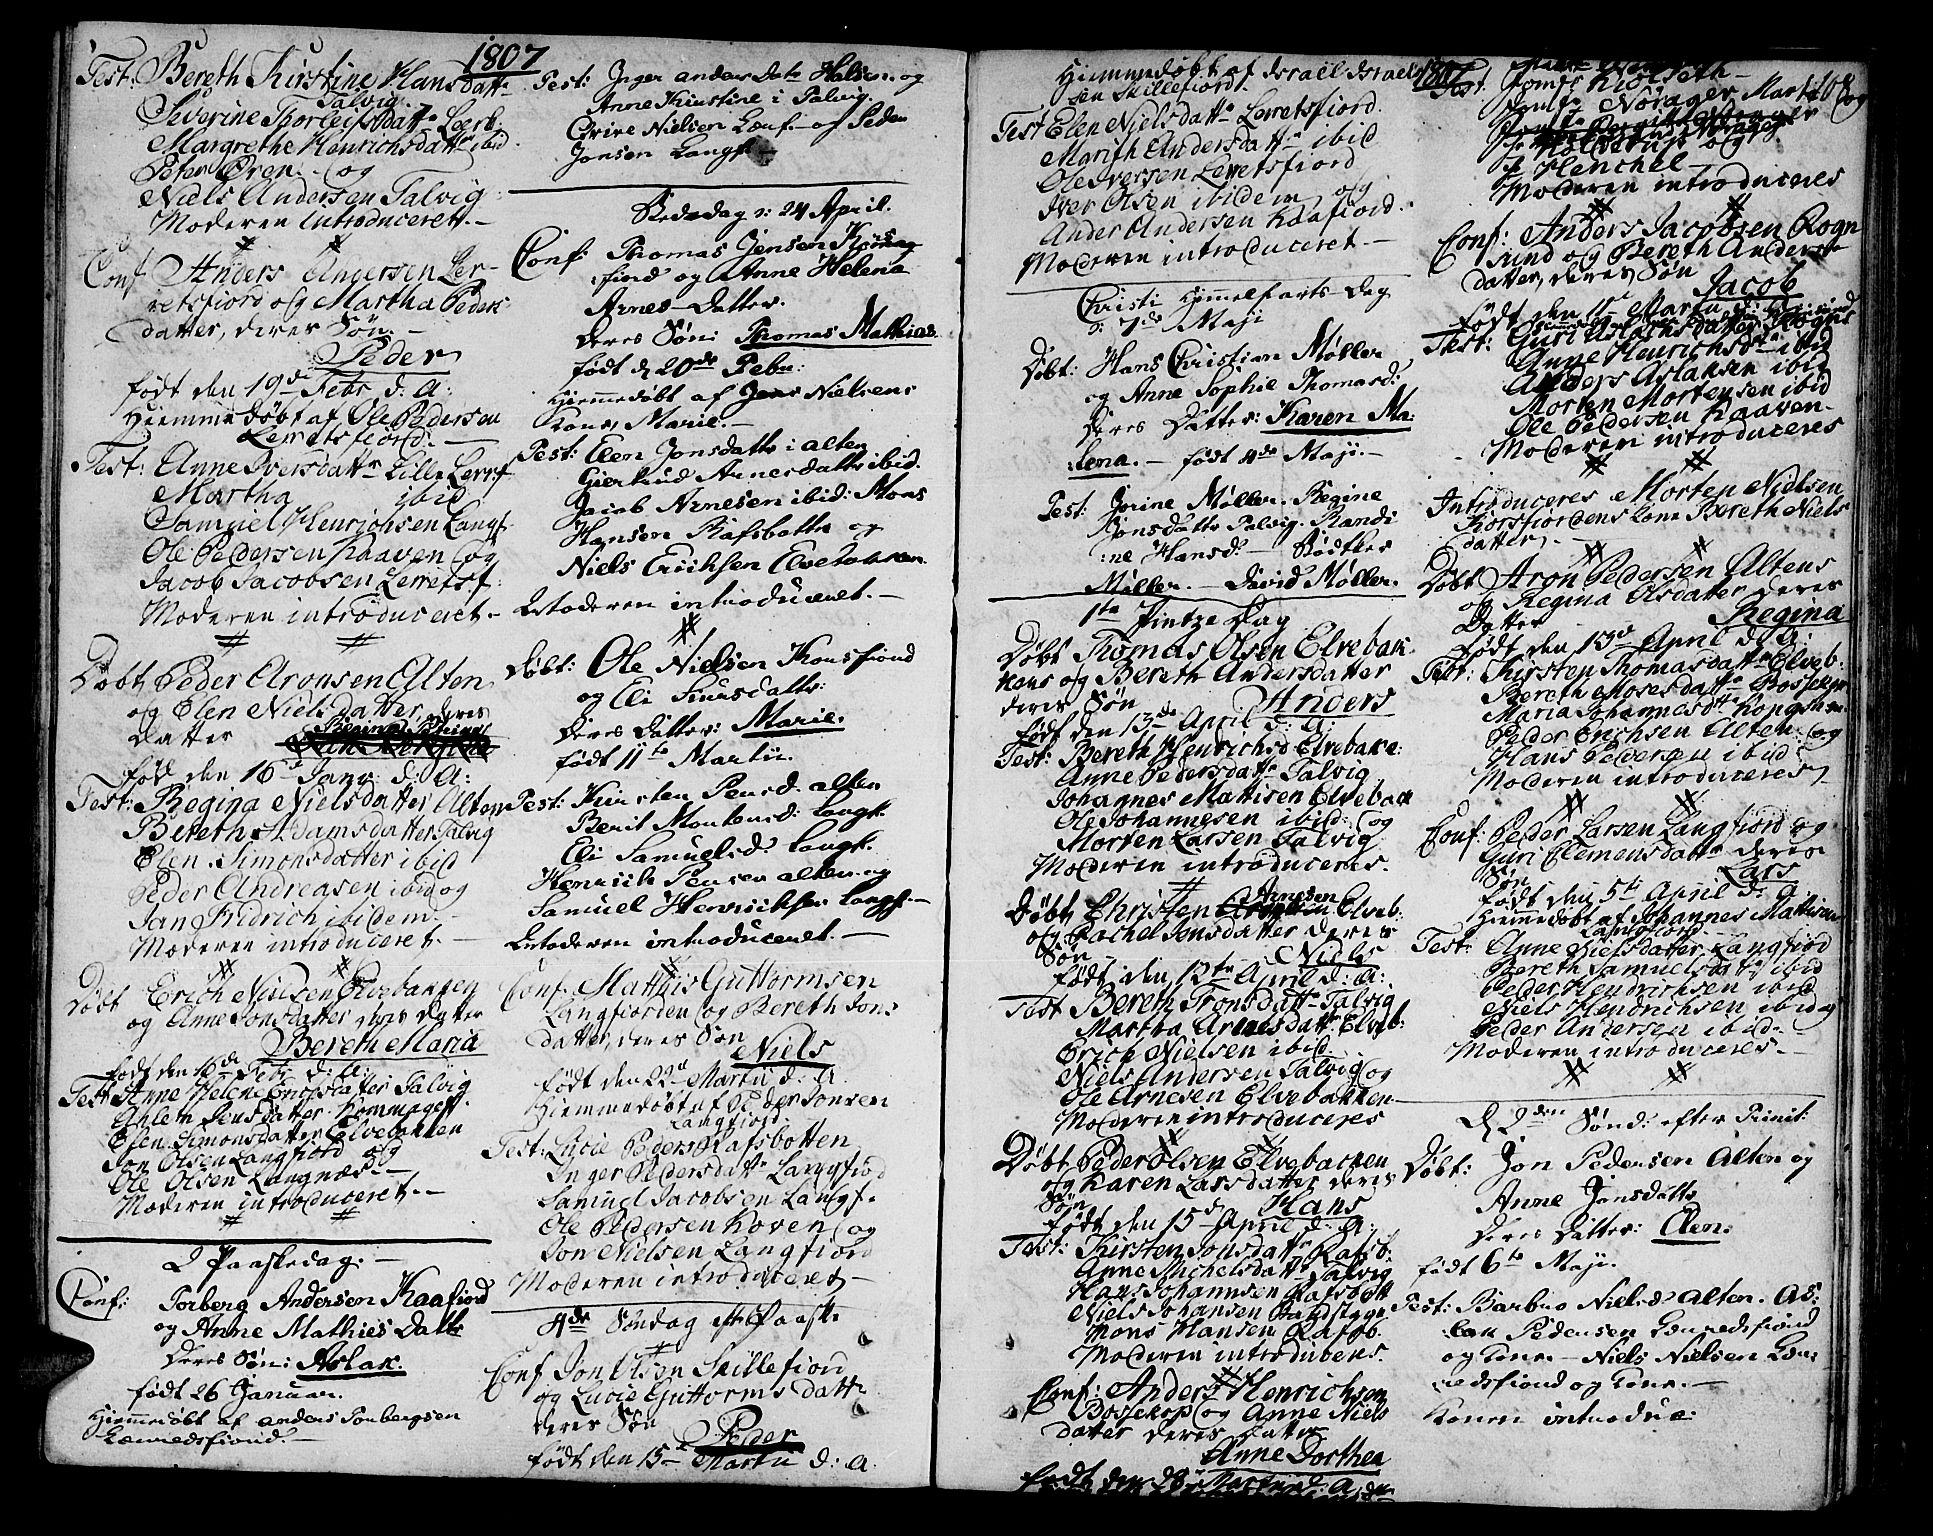 1807
Test: Bereth Kirstine Hansdattr
Talvig.
Severine Thorleifsdattr Lerb.
Margrethe Henrichsdattr ibid.
Peter Øren og
Niels Andersen Talvig
Moderen introduceret.
Conf Anders Andersen Ler-
retsfiord og Martha Peders
datter, deres Søn.
Peder
født den 19de Febr d: A:
Hiemmedøbt af Ole Pedersen
Lerretsfiord.
Test: Anne Iversdattr Lille Lerrf
Martha ibid
Samuel Henrichsen Langf.
Ole Pedersen Kaaven og
Jacob Jacobsen Lerretsf.
Moderen introduceret.
Døbt Peder Aronsen Alten
og Elen Nielsdatter, deres
Datter
født den 16de Janv: d: A:
Test: Regina Nielsdatter Alten
Bereth Adamsdatter Talvig
Elen Simonsdatter ibid
Peder Andreasen ibid og
Jan Fridrich ibidem.
Moderen introduceret.
Døbt Erich Nielsen Elvebakken
og Anne Jonsdatter deres Datter
Bereth Maria
født den 16de Febr d: A:
Test Anne Helene Enosdatter Talvig
Ahlem Jensdatter Kommagefl.
Elen Simonsdatter Elvebakken
Jon Olsen Langfiord og
Ole Olsen Langnæs
Moderen introduceret.
2 Paaskedag:
Conf: Torberg Andersen Kaafiord
og Anne Mathies Dattr
deres Søn: Aslak.
født 26 Januar.
Hiemmedøbt af Anders Torbergsen
Lerredsfiord.
Test: Inger Anders Datr Halsen og
Anne Kirstine i Talvig
Grire Nielsen Lerf. og Peder
Jonsen Langf.
Bededag d: 24 April.
Conf: Thomas Jensen Kors-
fiord og Anne Helena
Arnes-Datter.
Deres Søn: Thomas Mathias
født d 20de Febr:
Hiemmedøbt af Jens Nielsens
Kone, Marie.
Test: Elen Jonsdattr i Alten
Giertrud Arnesdattr ibid.
Jacob Arnesen ibid: Mons
Hansen Rafsbottn og
Niels Erichsen Elvebakken.
Moderen introduceret.
Døbt: Ole Nielsen Korsfiord
og Eli Siursdattr:
Deres Datter: Marie.
født 11te Martii.
Test: Kirsten Pensd: Alten
Berit Mortensd: Langf.
Eli Samuelsd: Langf.
Henrich Pensen Alten og
Samuel Henrichsen Langf.
Moderen introduceret.
Conf. Matthis Guttormsen
Langfiorden og Bereth Jons
datter, deres Søn
Niels
født den 22de Martii d: A.
Hiemmedøbt af Peder Jonsen
Langfiord
Test: Lucie Peders Rafsbotten
Inger Pedersdattr Langfiord
Samuel Jacobsen Langf.
Ole Pedersen Koven og
Jon Nielsen Langfiord
Moderen introduceret.
4de Søndag eft: Paaske
Conf Jon Olsen Skillefiord
og Lucie Guttorms dattr
deres Søn
Peder
født den 15de Martii d: A.
Hiemmedøbt af Israel Israel
sen Skillefiord.
Test Elen Nielsdattr Lerretsfiord.
Marith Andersdattr ibid
Ole Iversen Lerretsfiord
Iver Olsen ibidem og
Ander Andersen Kaafiord.
Moderen introduceret.
Christi Himmelfarts Dag
d: 7de Maji
Døbt: Hans Christian Møller
og Anne Sophie Thomasd:
Deres Datter: Karen Ma:
:lena. født 4de Maji.
Test: Irine Møller. Regine
Jonsdattr Talvig. Randi
:ne Hansd: Bødtker
Møller. David Møller.
1ste Pintze Dag
Døbt Thomas Olsen Elvebak
kens og Bereth Andersdatter
deres Søn Anders
født den 13de April d: A:
Test: Bereth Henrichsd Elvebake:
Anne Pedersdattr Talvig
Johannes Mattisen Elvebak
Ole Johannesen ibid: og
Morten Larsen Talvig
Moderen introduceres.
Døbt Christen Arnesen Elveb:
og Rachel Jensdatter deres
Søn Niels
født den 12te April d: A:
Test Bereth Tronsdattr Talvig
Martha Arnesdattr Elveb:
Erich Nielsen ibid
Niels Andersen Talvig og
Ole Arnesen Elvebakken
Moderen introduceres
Døbt Peder Olsen Elvebacken
og Karen Larsdatter deres
Søn Hans
født den 15de April d: A:
Test: Kirsten Jonsdattr Rafsb:
Anne Michelsdattr Talvig
Hans Johannsen Rafsbott
Niels Johansen
Mons Hansen Rafsb.
Moderen introduceres.
Conf: Anders Henrichsen
Bossekop og Anne Niels
datter deres Datter
Anne Dorthea
født den 28de Martii d: A.
1807
108
Test
Nørager
og
Henchel
Moderen introduceres
Conf: Anders Jacobsen Rogn
sund og Bereth Anders
datter, deres Søn
Jacob
født den 1te Martii
Test: Guri Aslaksdatter Rogns
Anne Henrichsdr ibid
Anders Aslaksen ibid
Morten Mortensen ibid
Ole Pedersen Kaaven.
Moderen introduceres
Introduceres Morten Nielsen
Korsfiordens Kone Bereth Niels
datter.
Døbt Aron Pedersen Altens
og Regina Olsdatter deres
Datter Regina
født den 13de April d: A:
Test: Kirsten Thomasdattr Elveb:
Bereth Mosesdattr Bossekop
Maria Johannesdtr Kongshm:
Peder Erichsen Alten og
Hans Pedersen ibid
Moderen introduceres
Conf: Peder Larsen Langfiord og
Guri Clemensdattr deres
Søn Lars
født den 5te April d: A.
Hiemmedøbt af Johannes Mattisen
Langfiord.
Test: Anne Nielsdatter Langfiord
Bereth Samuelsdatr ibid
Peder Hendrichsen ibid
Niels Hendrichsen ibid og
Peder Andersen ibid.
Moderen introduceres.
D 2den Sønd: efter Trinit:
Døbt: Jon Pedersen Alten og
Anne Jonsdattr
Deres Datter: Elen.
født 6te Maji.
Test: Barbro Nielsd Alten. As:
lak Pedersen Lerredsfiord
og Kone. Niels Nielsen Ler:
redsfiord og Kone.
Konen introduc: